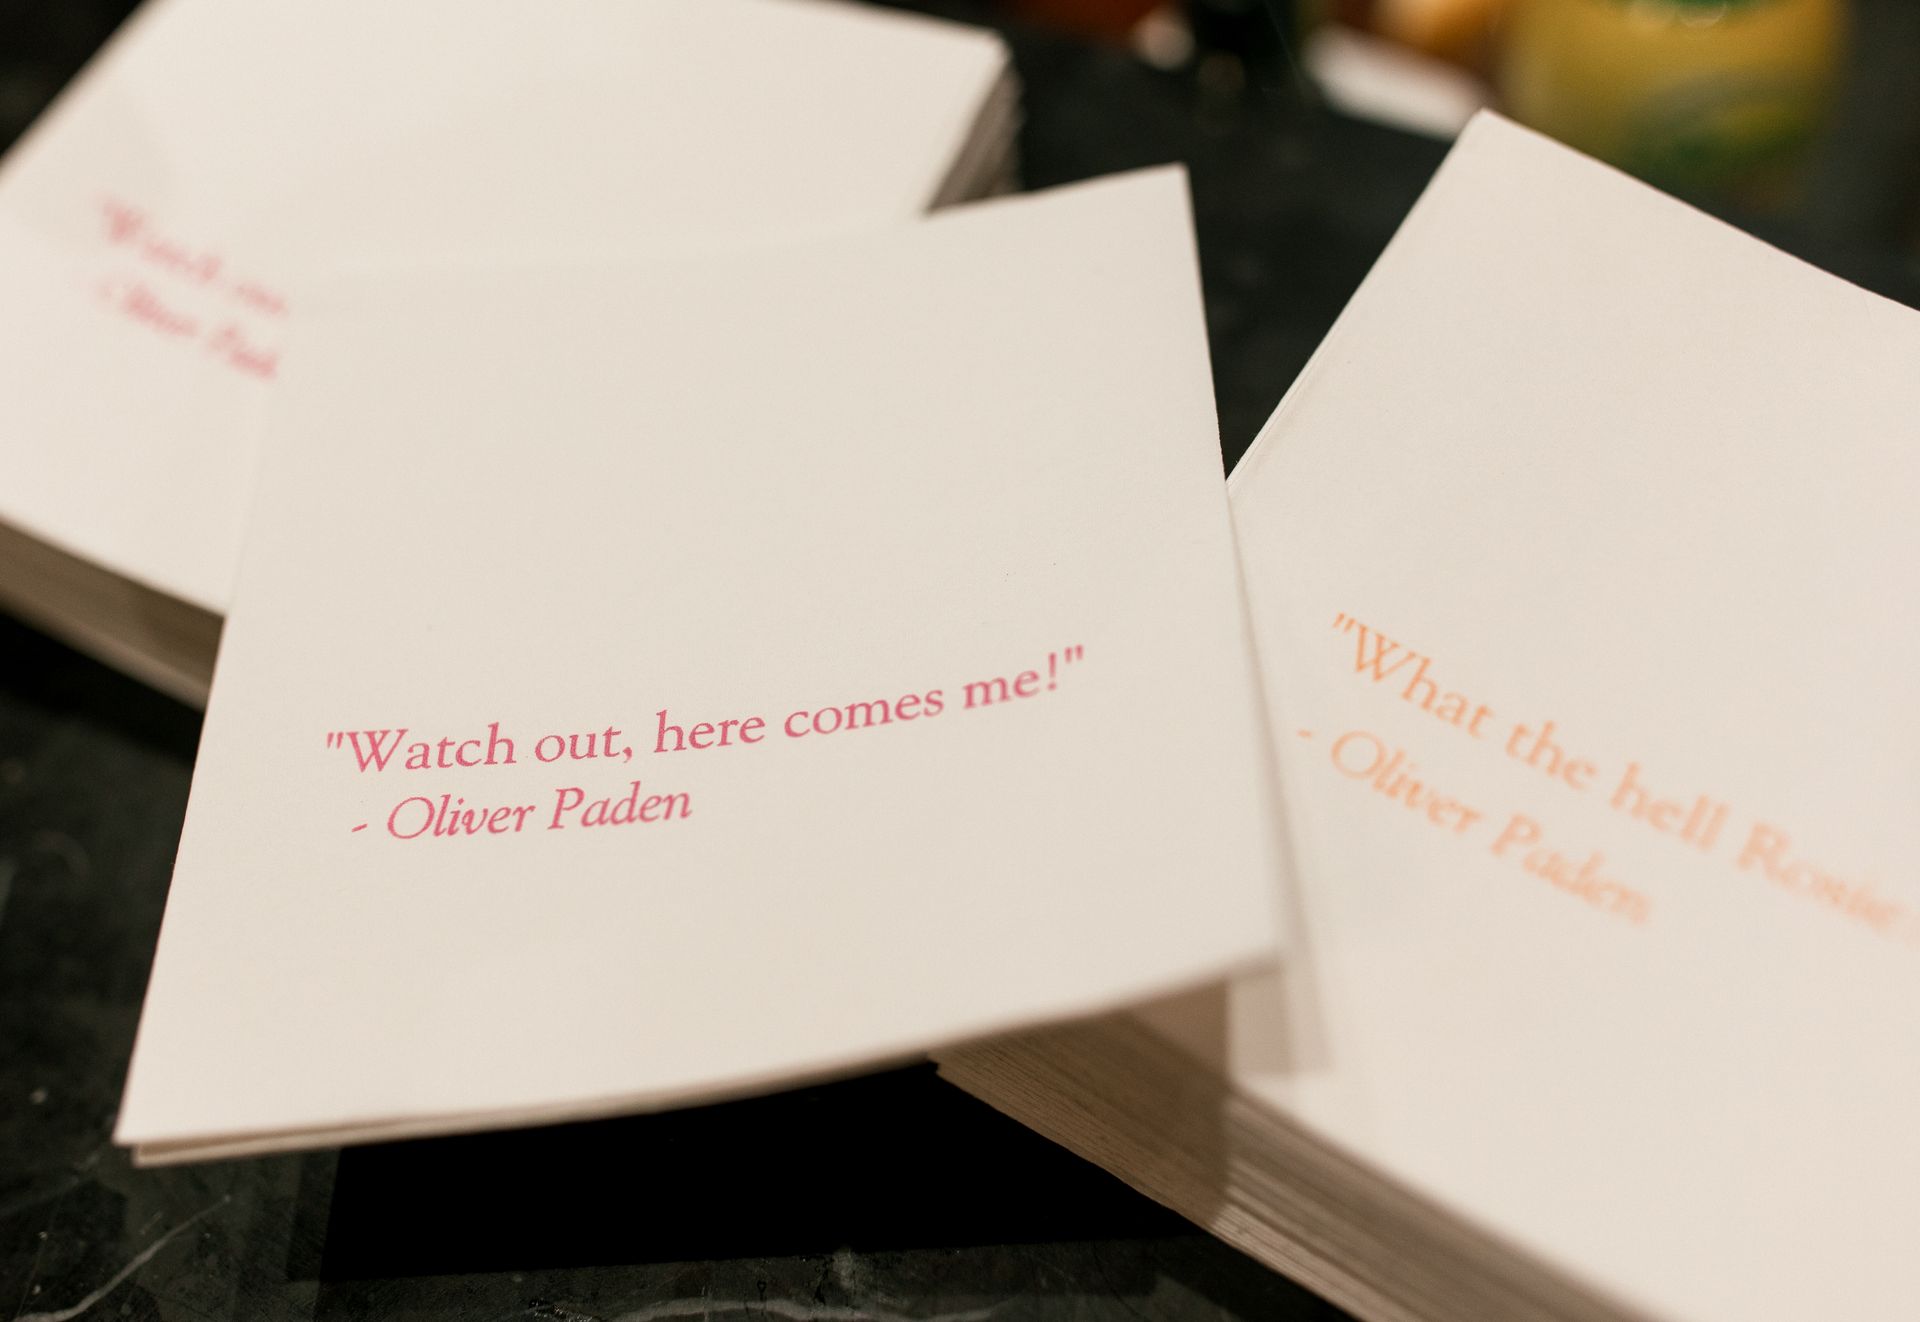 "Watch
- Oliver
"Watch out, here comes me!"
- Oliver Paden
"What the hell Rosie
- Oliver Paden